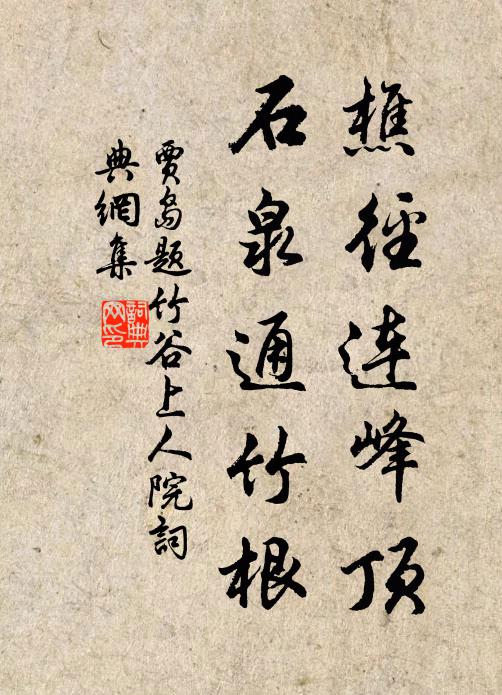 樵径連峰顶
石泉通竹根
贾岛题竹谷上人院詞
典網集
詞典网印